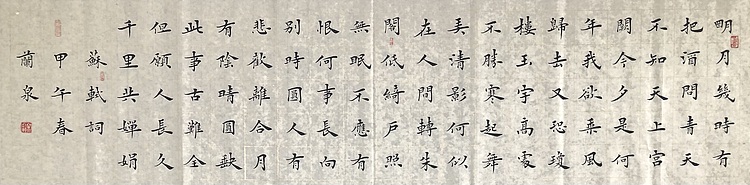 明月幾時有
把酒問青天
不知天上宮
闕今夕是何
年我欲乘風
歸去又恐瓊
樓玉宇高處
不勝寒起舞
弄清影何似
在人間轉朱
閣低綺戶照
無眠不應有
恨何事長向
別時圓人有
悲歡離合月
有陰晴圓缺
此事古難全
但願人長久
千里共嬋娟
蘇軾詞
甲午春
蘭泉